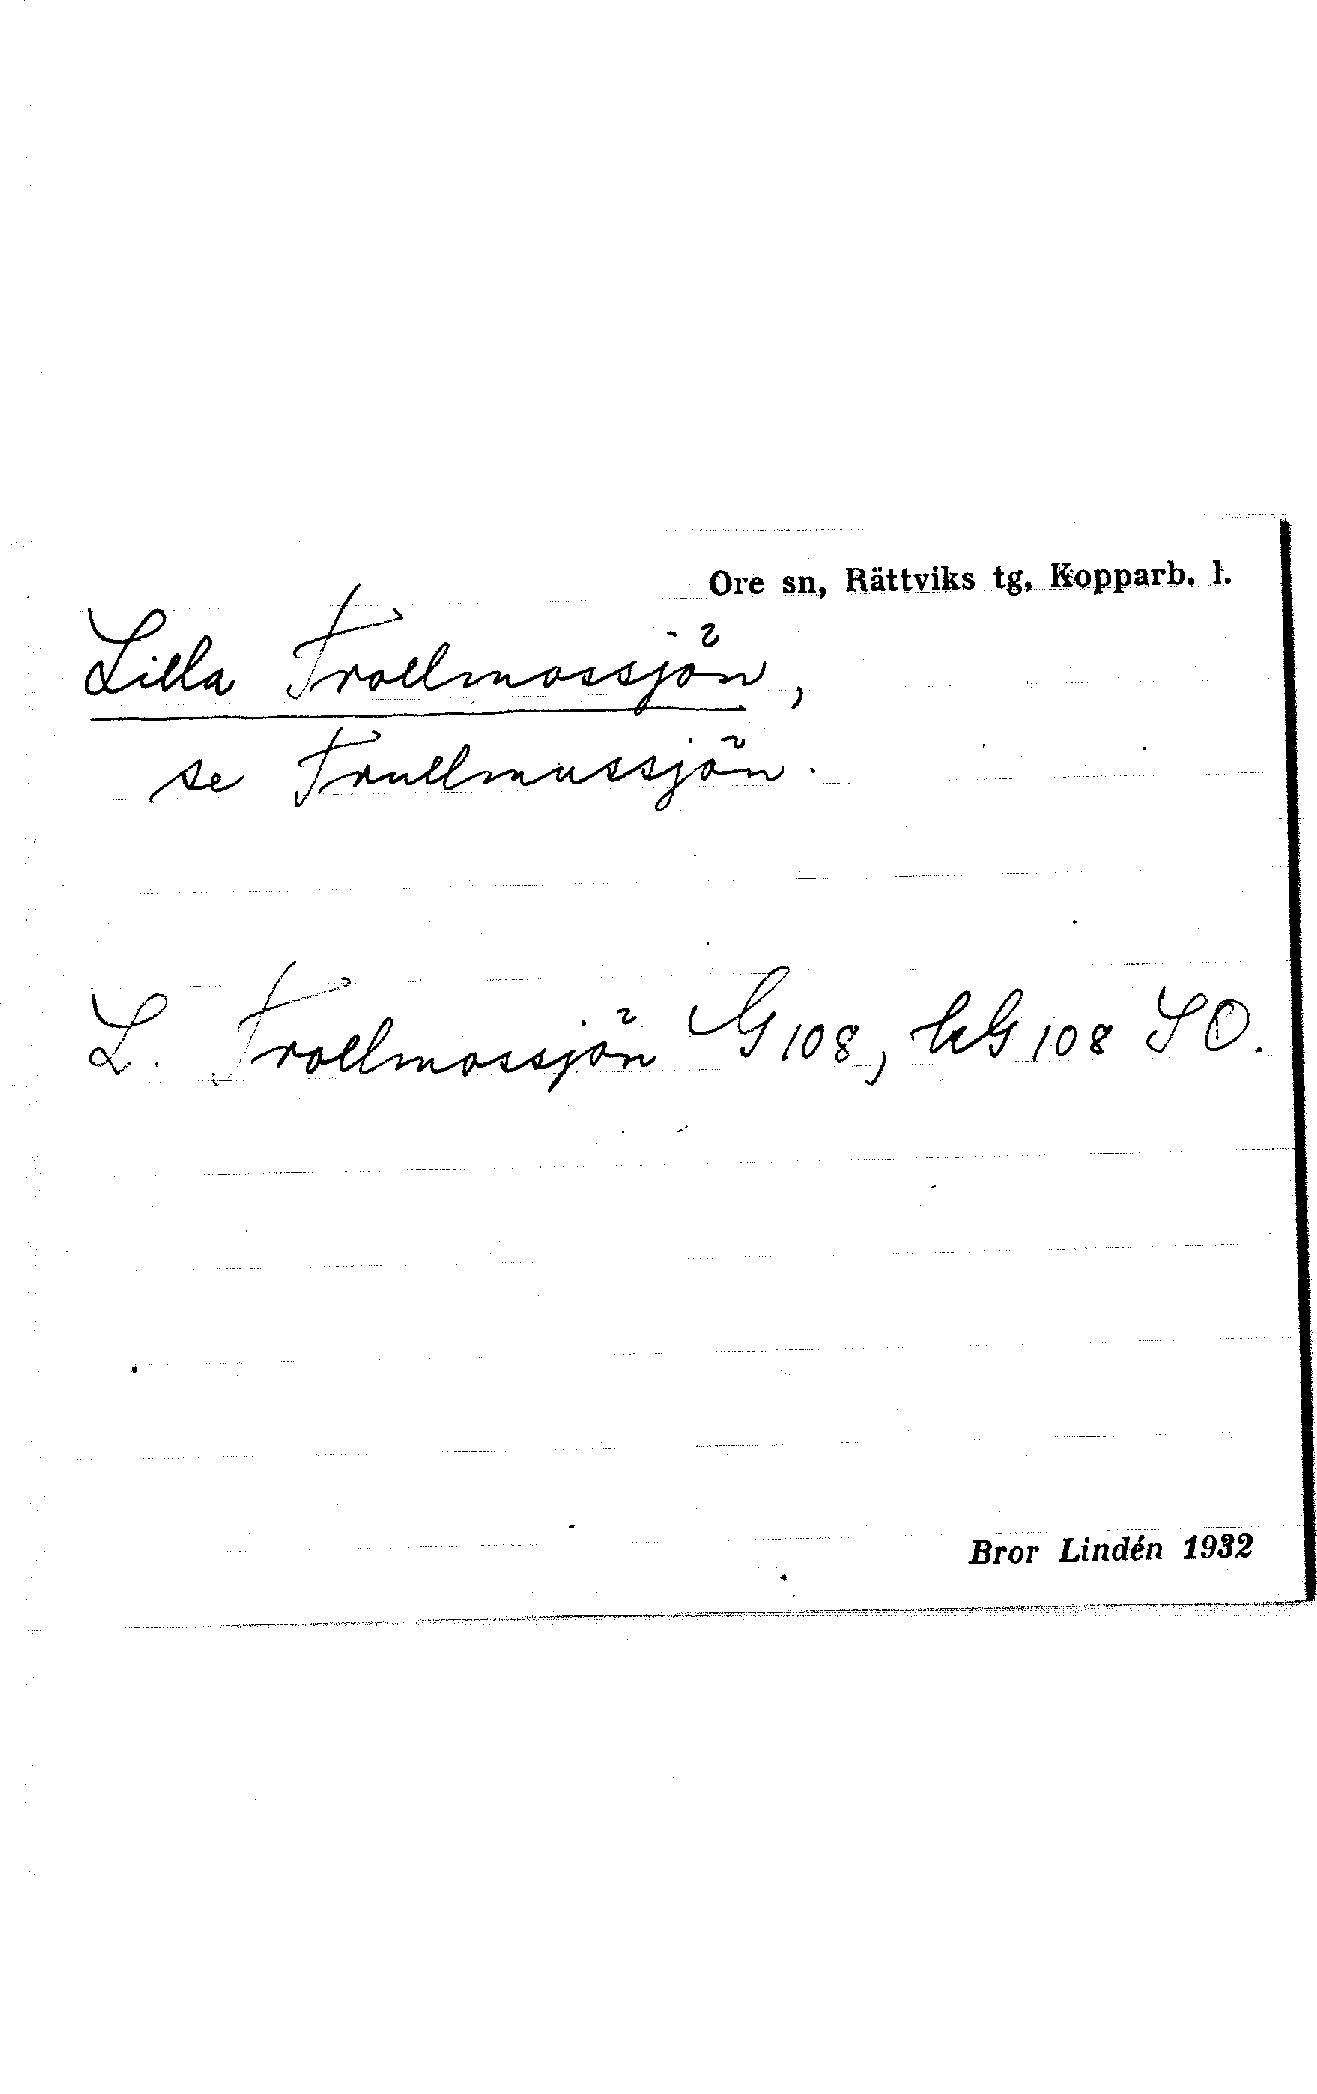 Ore sn, Rättviks tg, Kopparb. l.
Lilla Trollmossjön,
se Trullmussjön.
L. Trollmossjön G 108, hG 108 SO.
Bror Lindén 1932